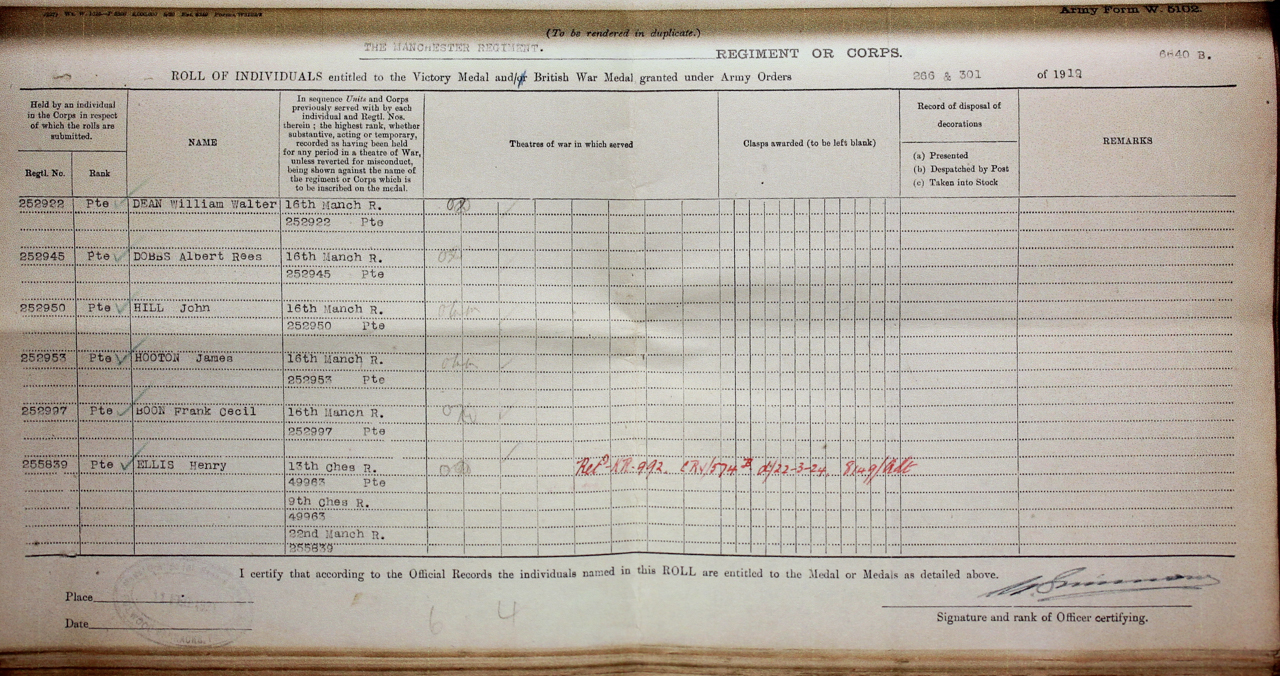 Army Form W. 5102.
(To be rendered in duplicate.)
THE MANCHESTER REGIMENT. REGIMENT OR CORPS. 6640 B.
ROLL OF INDIVIDUALS entitled to the Victory Medal and/or British War Medal granted under Army Orders 266 & 301 of 1919
Held by an individual
in the Corps in respect
of which the rolls are
submitted.
Regtl. No. Rank
NAME
In sequence Units and Corps
previously served with by each
individual and Regtl. Nos.
therein ; the highest rank, whether
substantive, acting or temporary,
recorded as having been held
for any period in a theatre of War,
unless reverted for misconduct,
being shown against the name of
the regiment or Corps which is
to be inscribed on the medal.
Theatres of war in which served
Clasps awarded (to be left blank)
Record of disposal of
decorations
(a) Presented
(b) Despatched by Post
(c) Taken into Stock
REMARKS
252922 Pte DEAN William Walter 16th Manch R.
252922 Pte
252945 Pte DOBBS Albert Rees 16th Manch R.
252945 Pte
252950 Pte HILL John 16th Manch R.
252950 Pte
252953 Pte HOOTON James 16th Manch R.
252953 Pte
252997 Pte BOON Frank Cecil 16th Manch R.
252997 Pte
255839 Pte ELLIS Henry 13th Ches R. 22-3-24
49963 Pte
9th Ches R.
49963
22nd Manch R.
255839
I certify that according to the Official Records the individuals named in this ROLL are entitled to the Medal or Medals as detailed above.
Place
Date
6 4
Signature and rank of Officer certifying.